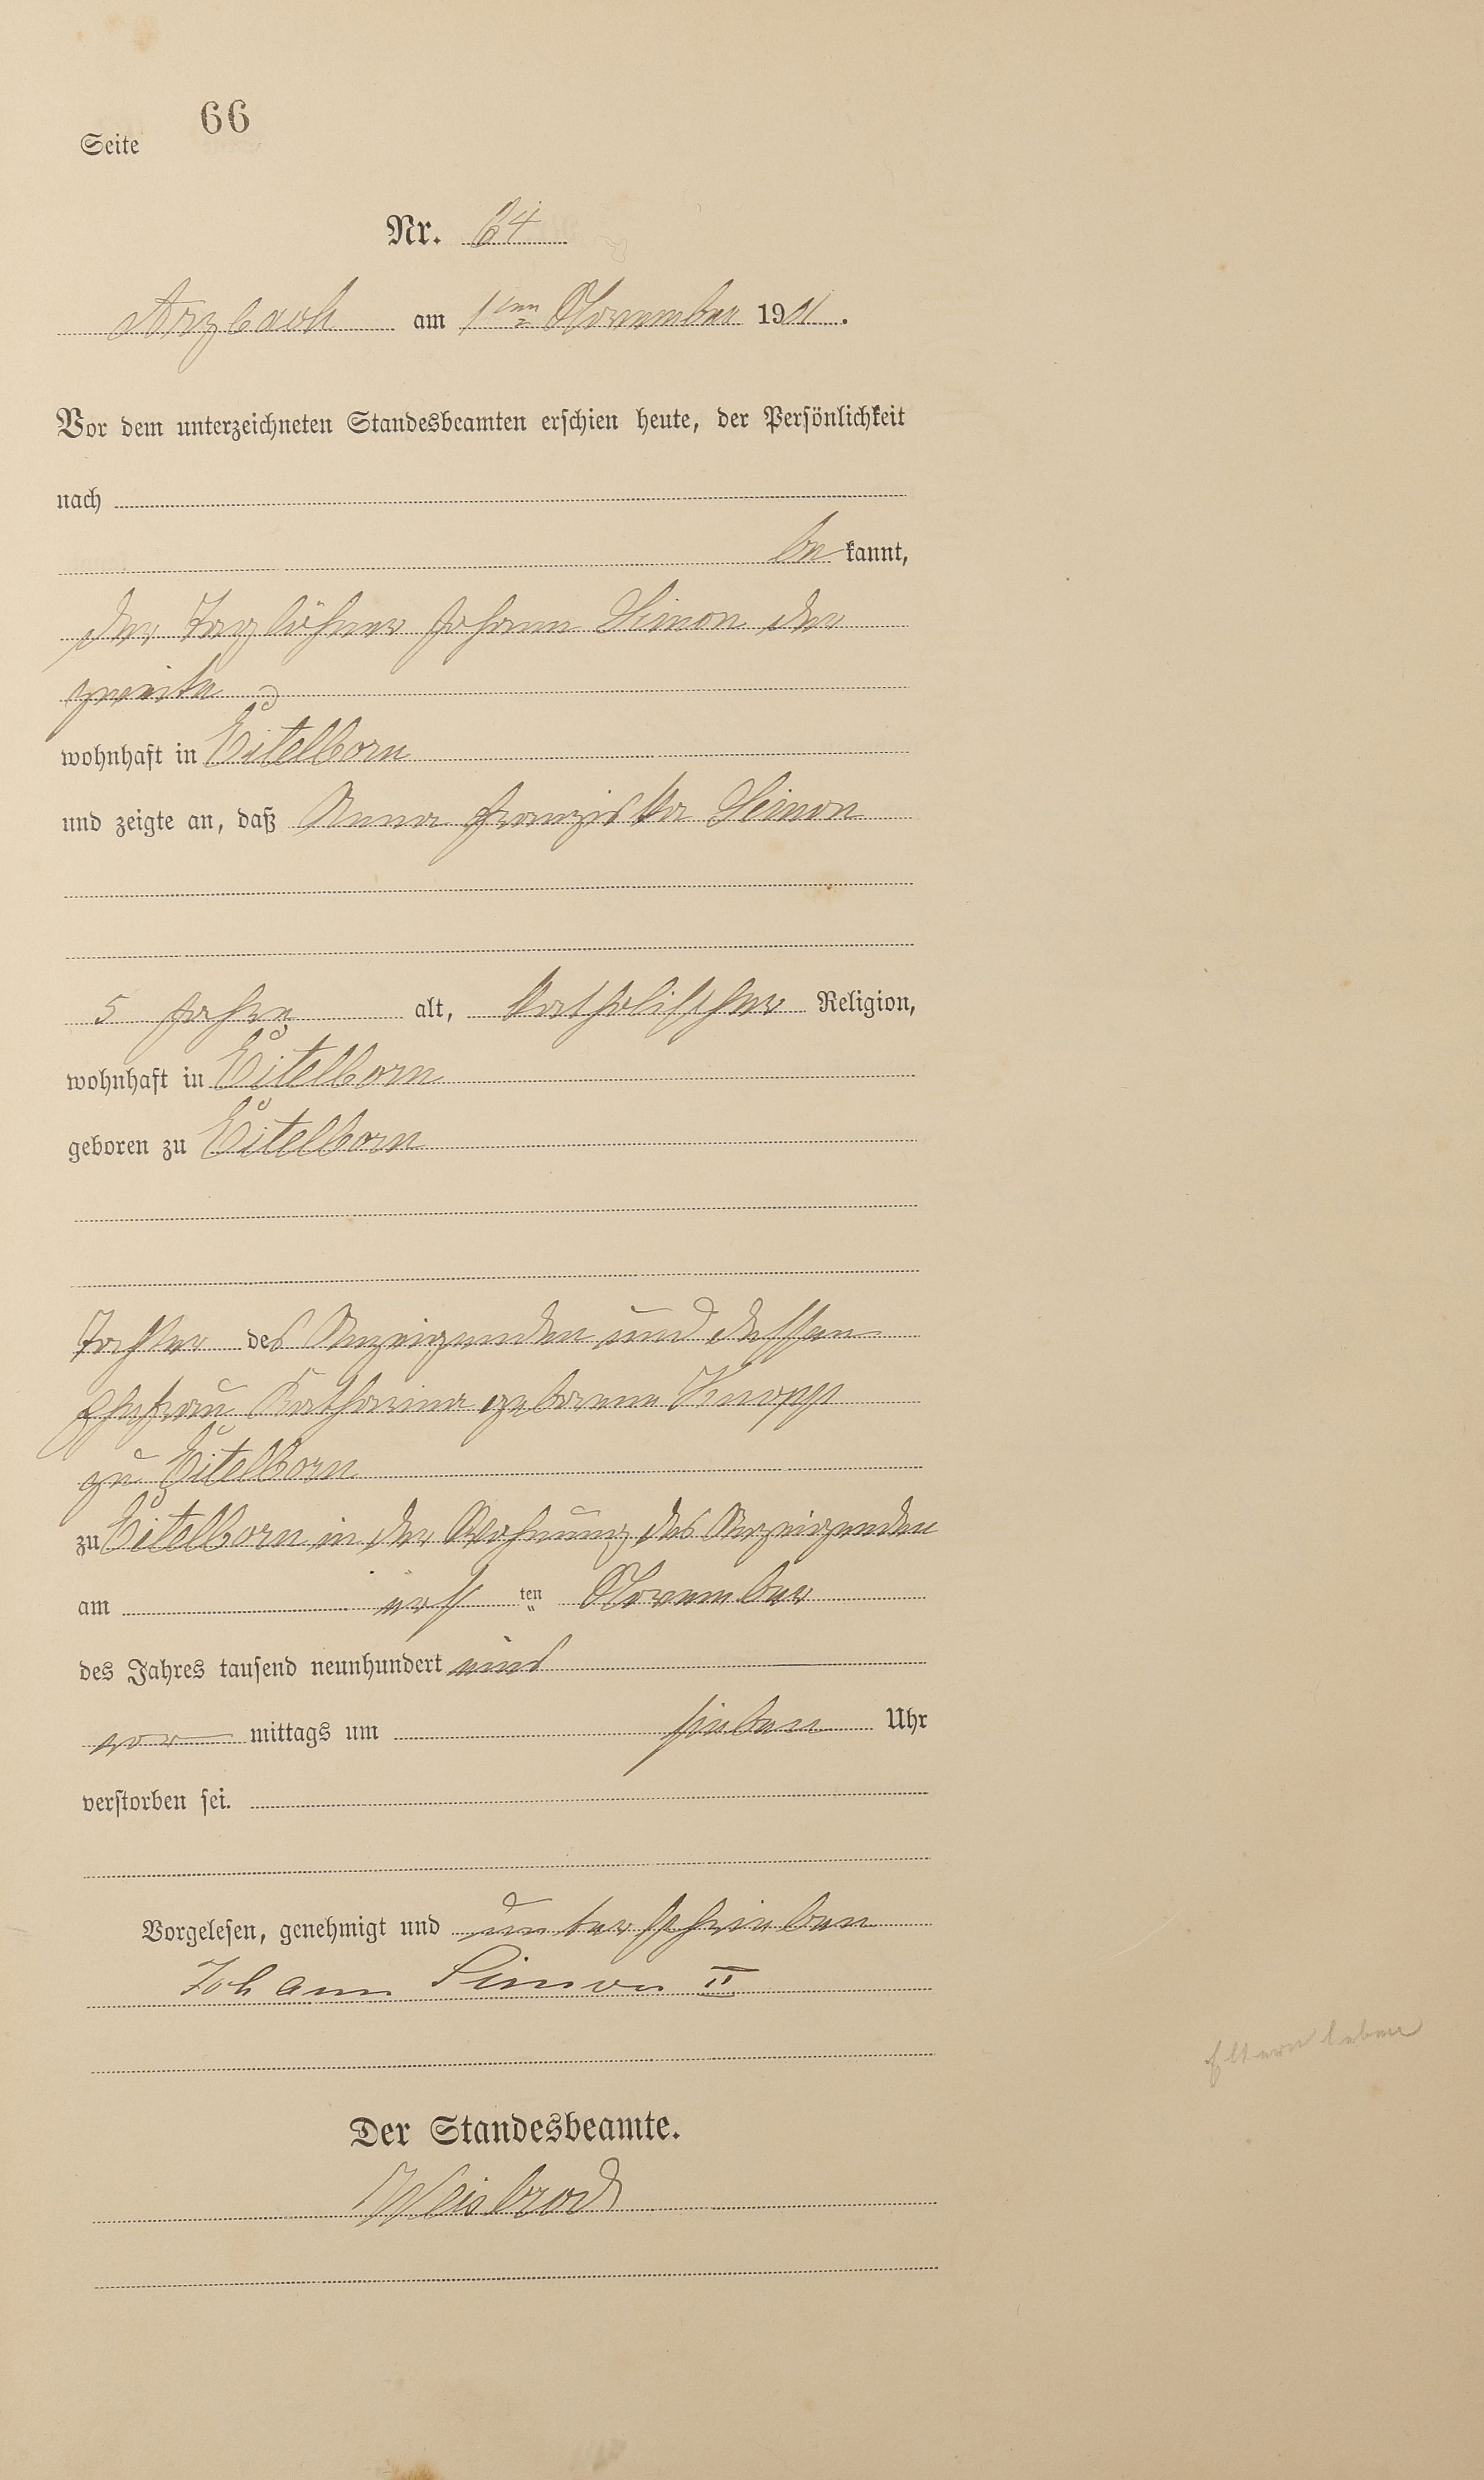 66
Seite
Nr. 64
Arzbach am 1ten November 1901.
Vor dem unterzeichneten Standesbeamten erschien heute, der Persönlichkeit
nach
be kannt,
der Taglöhner Johann Simon der
zweite
wohnhaft in Eitelborn
und zeigte an, daß Anna Franziska Simon
5 Jahre alt, katholischer Religion,
wohnhaft in Eitelborn
geboren zu Eitelborn
Tochter des Anzeigenden und dessen
Ehefrau Katharina geborene Knopp
zu Eitelborn
zu Eitelborn in der Wohnung des Anzeigenden
am erst ten November
des Jahres tausend neunhundert eins
vor mittags um sieben Uhr
verstorben sei.
Vorgelesen, genehmigt und unterschrieben
Johann Simon II
Eltern leben
Der Standesbeamte.
Weisbrod